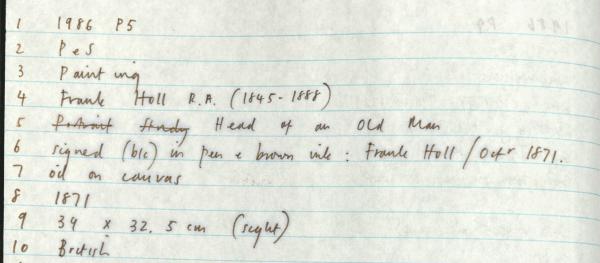 1 1986 P5
2 PeS
3 Painting
4 Frank Holl R.A. (1845-1888)
5 Portrait Study Head of an Old Man
6 signed (blc) in pen & brown ink: Frank Holl / Octr 1871.
7 oil on canvas
8 1871
9 39 x 32.5 cm (sight)
10 British